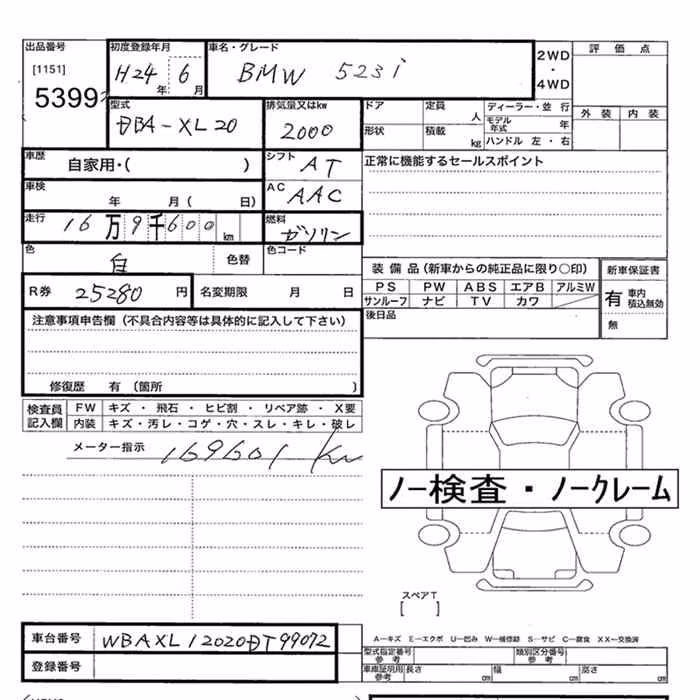 出品番号 初度登録年月 車名・グレード 2WD・4WD 評価点
[1151] H24年 6月 BMW 523i
5399 外装 内装
型式 排気量又はkw ドア 定員 人 ディーラー・並行
DBA-XL20 2000 モデル年式 年
形状 積載 kg ハンドル 左・右
車歴 自家用・( ) シフト AT 正常に機能するセールスポイント
車検 年 月( 日) AC AAC
走行 16万9千600km 燃料 ガソリン
色 白 色替 色コード
装備品(新車からの純正品に限り○印) 新車保証書
PS PW ABS エアB アルミW 有 車内積込無効
サンルーフ ナビ TV カワ 無
R券 25280円 名変期限 月 日 後日品
注意事項申告欄(不具合内容等は具体的に記入して下さい)
修復歴 有〔箇所 〕
検査員記入欄 FW キズ・飛石・ヒビ割・リペア跡・X要
内装 キズ・汚レ・コゲ・穴・スレ・キレ・破レ
メーター指示 169601 Km
ノー検査・ノークレーム
スペアT
[ ]
車台番号 WBAXL12020DT99072
登録番号
A—キズ E—エクボ U—凹み W—補修跡 S—サビ C—腐食 XX—交換済
型式指定番号 参考 類別区分番号 参考
車庫証明用 参考 長さ cm 幅 cm 高さ cm